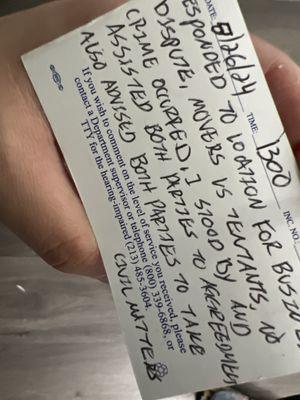 DATE: 8/26/24 TIME: 1300 INC. NO.
RESPONDED TO LOCATION FOR BUSINESS
DISPUTE, MOVERS VS TENTANTS, NO
CRIME OCCURED, I STOOD BY AND
ASSISTED BOTH PARTIES TO AGREEMENT,
ALSO ADVISED BOTH PARTIES TO TAKE
CIVIL MATTERS
If you wish to comment on the level of service you received, please
contact a Department supervisor or telephone (800) 339-6868, or
TTY for the hearing-impaired (213) 485-3604.